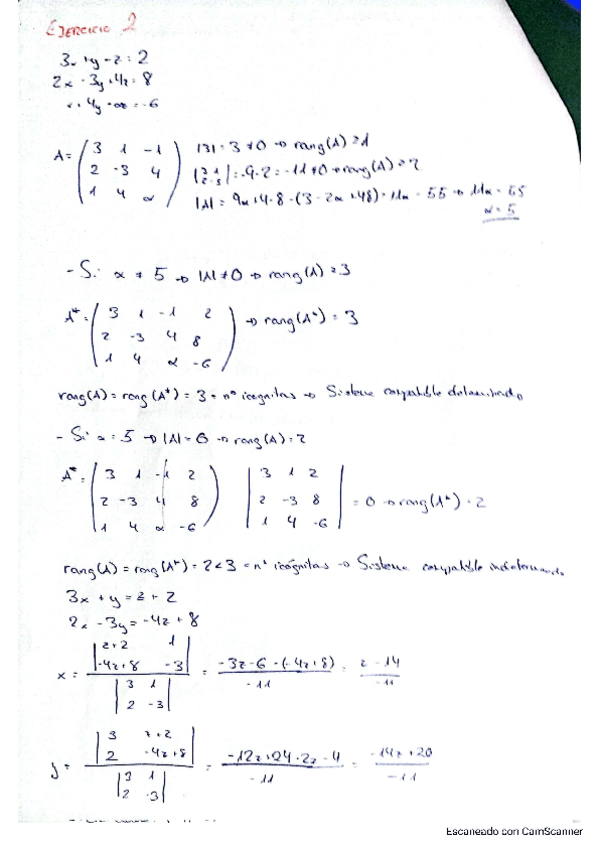 EJERCICIO 2
3x + y - z = 2
2x - 3y + 4z = 8
x + 4y - αz = -6
A = ( 3 1 -1 ; 2 -3 4 ; 1 4 α )
|3| = 3 ≠ 0 → rang(A) ≥ 1
|3 1 ; 2 -3| = -9 - 2 = -11 ≠ 0 → rang(A) ≥ 2
|A| = 9α + 4 - 8 - (3 - 2α + 48) = 11α - 55 → 11α = 55
α = 5
- Si α ≠ 5 → |A| ≠ 0 → rang(A) = 3
A* = ( 3 1 -1 2 ; 2 -3 4 8 ; 1 4 α -6 ) → rang(A*) = 3
rang(A) = rang(A*) = 3 = nº icognitas → Sistema compatible determinado
- Si α = 5 → |A| = 0 → rang(A) = 2
A* = ( 3 1 -1 2 ; 2 -3 4 8 ; 1 4 α -6 ) | 3 1 2 ; 2 -3 8 ; 1 4 -6 | = 0 → rang(A*) = 2
rang(A) = rang(A*) = 2 < 3 = nº icógnitas → Sistema compatible indeterminado
3x + y = z + 2
2x - 3y = -4z + 8
x = |z+2 1 ; -4z+8 -3| / |3 1 ; 2 -3| = -3z-6-(-4z+8) / -11 = z-14 / -11
y = |3 z+2 ; 2 -4z+8| / |3 1 ; 2 -3| = -12z+24-2z-4 / -11 = -14z+20 / -11
Escaneado con CamScanner